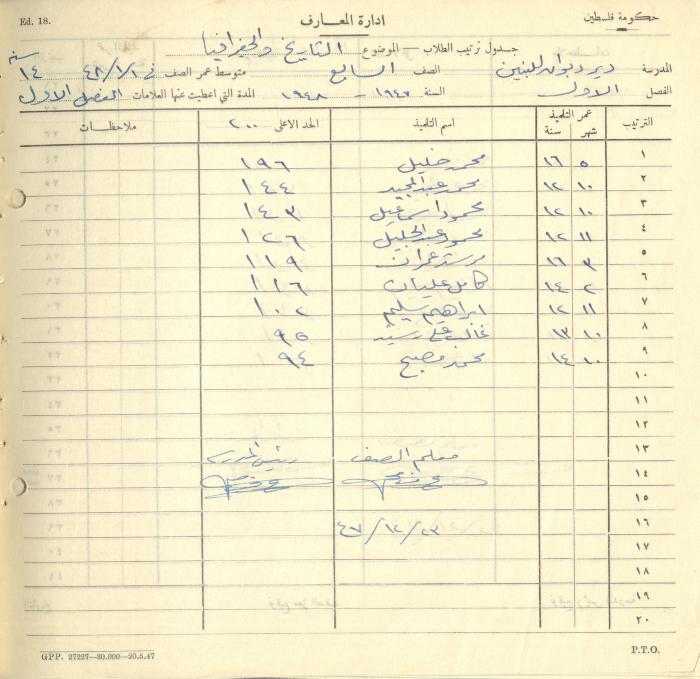 Ed. 18.
ادارة المعارف
حكومة فلسطين
جدول ترتيب الطلاب — الموضوع التاريخ والجغرافيا
المدرسة دير ديوان للبنين الصف السابع متوسط عمر الصف في ٤٨/١/١ ١٤ سنه
الفصل الاول السنة ١٩٤٧ - ١٩٤٨ المدة التي اعطيت عنها العلامات الفصل الاول
الترتيب عمر التلميذ شهر سنة اسم التلميذ الحد الاعلى ٢٠٠ ملاحظات
١ ٥ ١٦ محمد خليل ١٩٦
٢ ١٠ ١٢ محمد عبد المجيد ١٤٤
٣ ١٠ ١٢ محمود اسماعيل ١٤٣
٤ ١١ ١٢ محمود عبد الجليل ١٢٦
٥ ٣ ١٦ عمران ١١٩
٦ ٢ ١٤ كامل عليان ١١٦
٧ ١١ ١٢ ابراهيم سليم ١٠٢
٨ ١٠ ١٣ غالب علي رشيد ٩٥
٩ ١٠ ١٤ محمد مصبح ٩٤
١٠
١١
١٢
١٣ معلم الصف رئيس المدرسة
١٤
١٥
١٦ ٤٧/١٢/٢٣
١٧
١٨
١٩
٢٠
GPP. 27227—30.000—20.5.47
P.T.O.